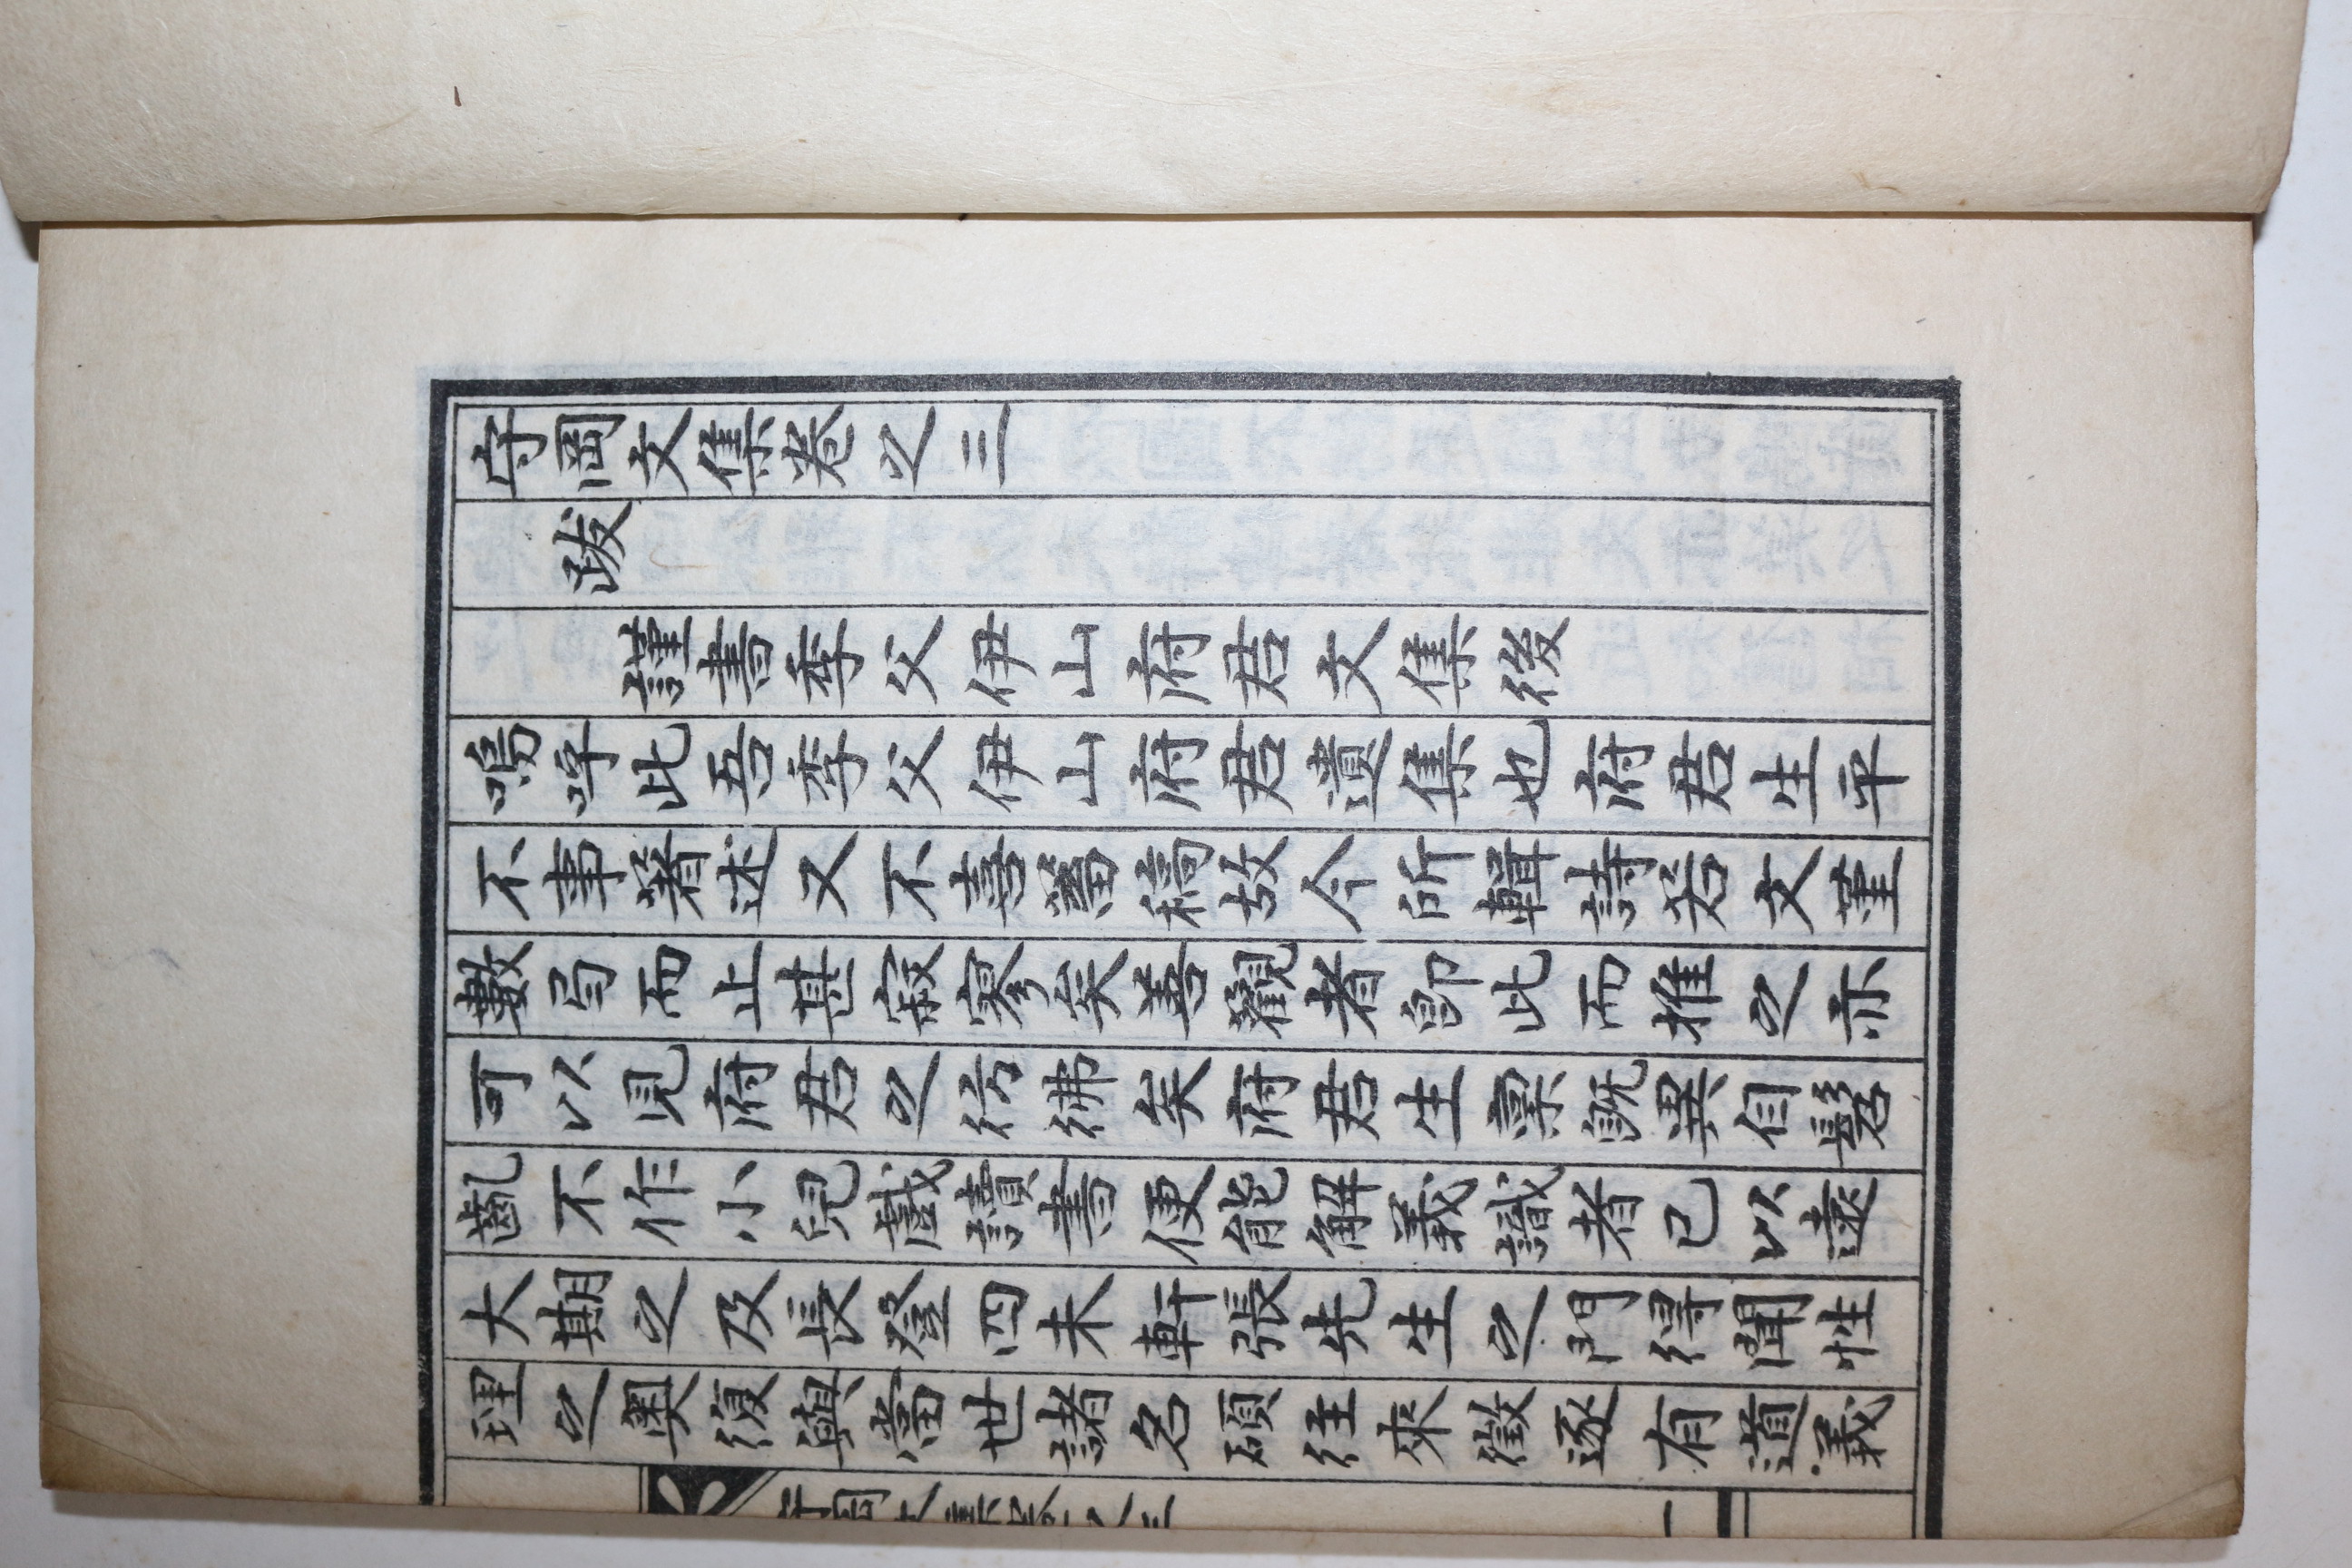 守岡文集卷之三
跋
謹書季父伊山府君文集後
嗚呼此吾季父伊山府君遺集也府君生平
不事著述又不喜蓄稿故今所輯詩若文堇
數而止甚寂寥矣善觀者卽此而推之亦
可以見府君之彷彿矣府君生稟旣異自髫
齓不作小兒戲讀書便能解義識者已以遠
大期之及長登四未軒張先生之門得聞性
理之奧復與當世諸名碩往來徵逐有道義